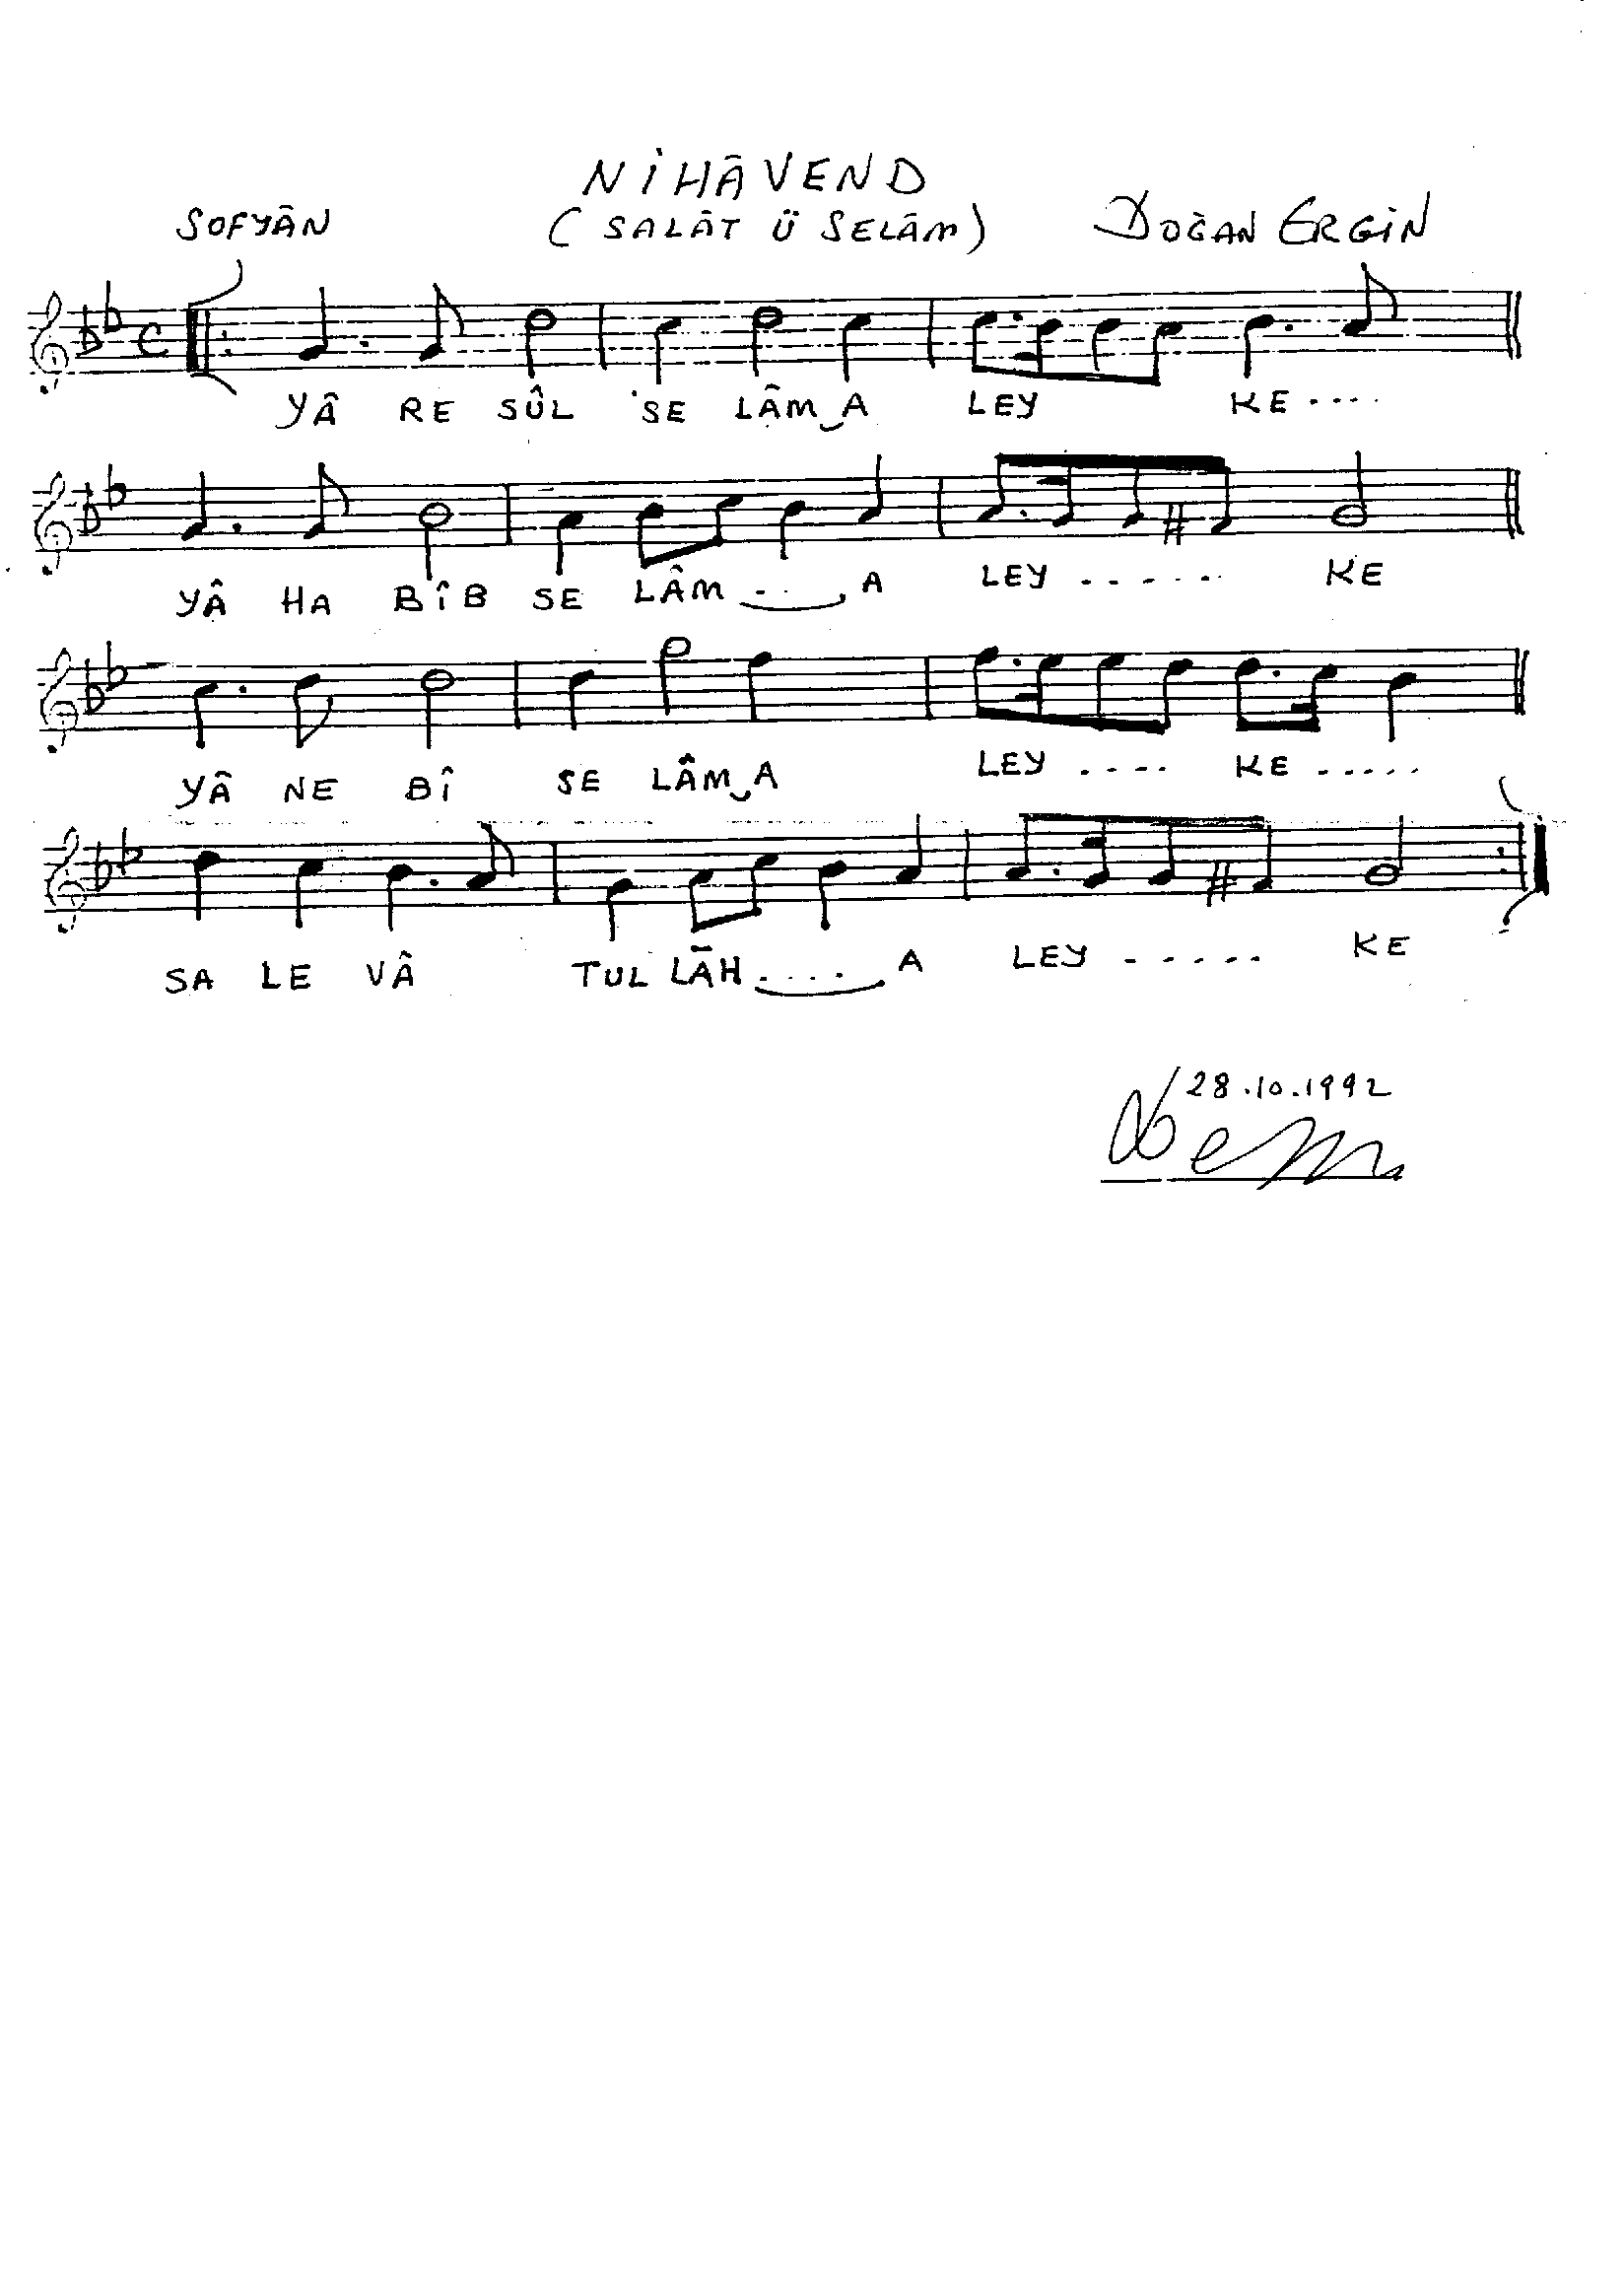 NİHÂVEND
SOFYÂN (SALÂT Ü SELÂM) DOĞAN ERGİN
YÂ RE SÛL SE LÂM A LEY KE ....
YÂ HA BÎB SE LÂM ... A LEY ...... KE
YÂ NE BÎ SE LÂM A LEY .... KE .....
SA LE VÂ TUL LÂH .... A LEY ..... KE
28.10.1992